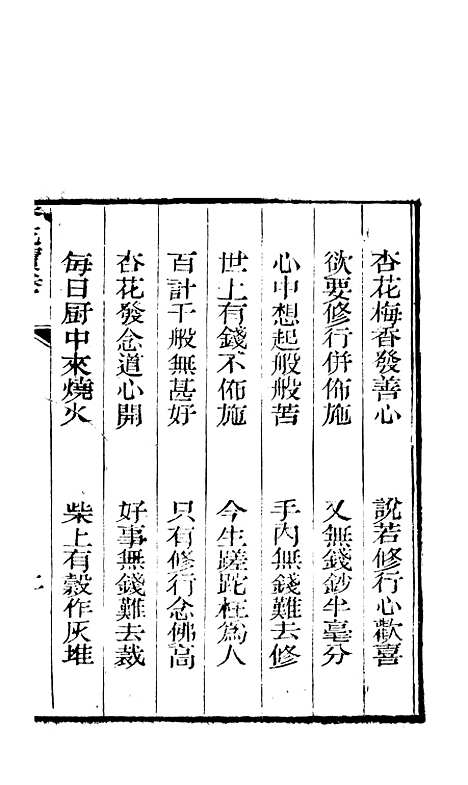 杏花梅香發善心　說若修行心歡喜
欲要修行併佈施　又無錢鈔半毫分
心中想起般般苦　手內無錢難去修
世上有錢不佈施　今生蹉跎枉為人
百計千般無甚好　只有修行念佛高
杏花發念道心開　好事無錢難去裁
每日厨中來燒火　柴上有穀作灰堆
花寶卷